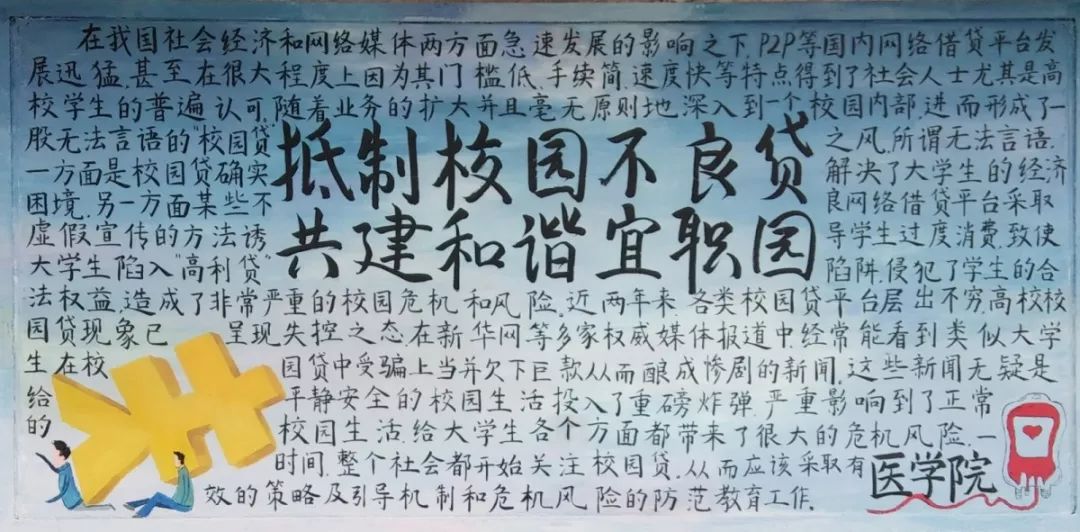 在我国社会经济和网络媒体两方面急速发展的影响之下,P2P等国内网络借贷平台发
展迅猛.甚至在很大程度上因为其门槛低.手续简.速度快等特点得到了社会人士尤其是高
校学生的普遍认可.随着业务的扩大并且毫无原则地.深入到一个校园内部.进而形成了一
股无法言语的“校园贷 之风.所谓无法言语.
一方面是校园贷确实 解决了大学生的经济
困境.另一方面某些不 良网络借贷平台采取
虚假宣传的方法诱 导学生过度消费.致使
大学生陷入“高利贷” 陷阱.侵犯了学生的合
抵制校园不良贷
共建和谐宜职园
法权益.造成了非常严重的校园危机和风险.近两年来.各类校园贷平台层出不穷.高校校
园贷现象已 呈现失控之态.在新华网等多家权威媒体报道中.经常能看到类似大学
生在校 园贷中受骗上当并欠下巨款从而酿成惨剧的新闻.这些新闻无疑是
给 平静安全的校园生活投入了重磅炸弹.严重影响到了正常
的 校园生活.给大学生各个方面都带来了很大的危机风险.一
时间.整个社会都开始关注校园贷.从而应该采取有
效的策略及引导机制和危机风险的防范教育工作.
医学院